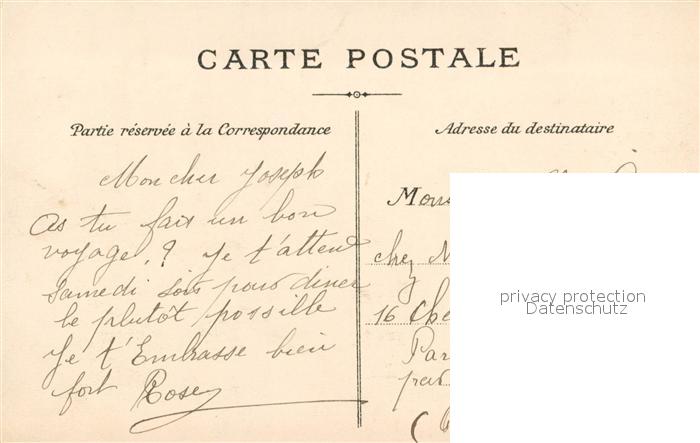 CARTE POSTALE
Partie réservée à la Correspondance
Mon cher Joseph
As tu fait un bon
voyage, ? Je t'attend
samedi soir pour diner
le plutôt possible
Je t'Embrasse bien
fort Rose
Adresse du destinataire
chez M
16 Che
Par
(
privacy protection
Datenschutz